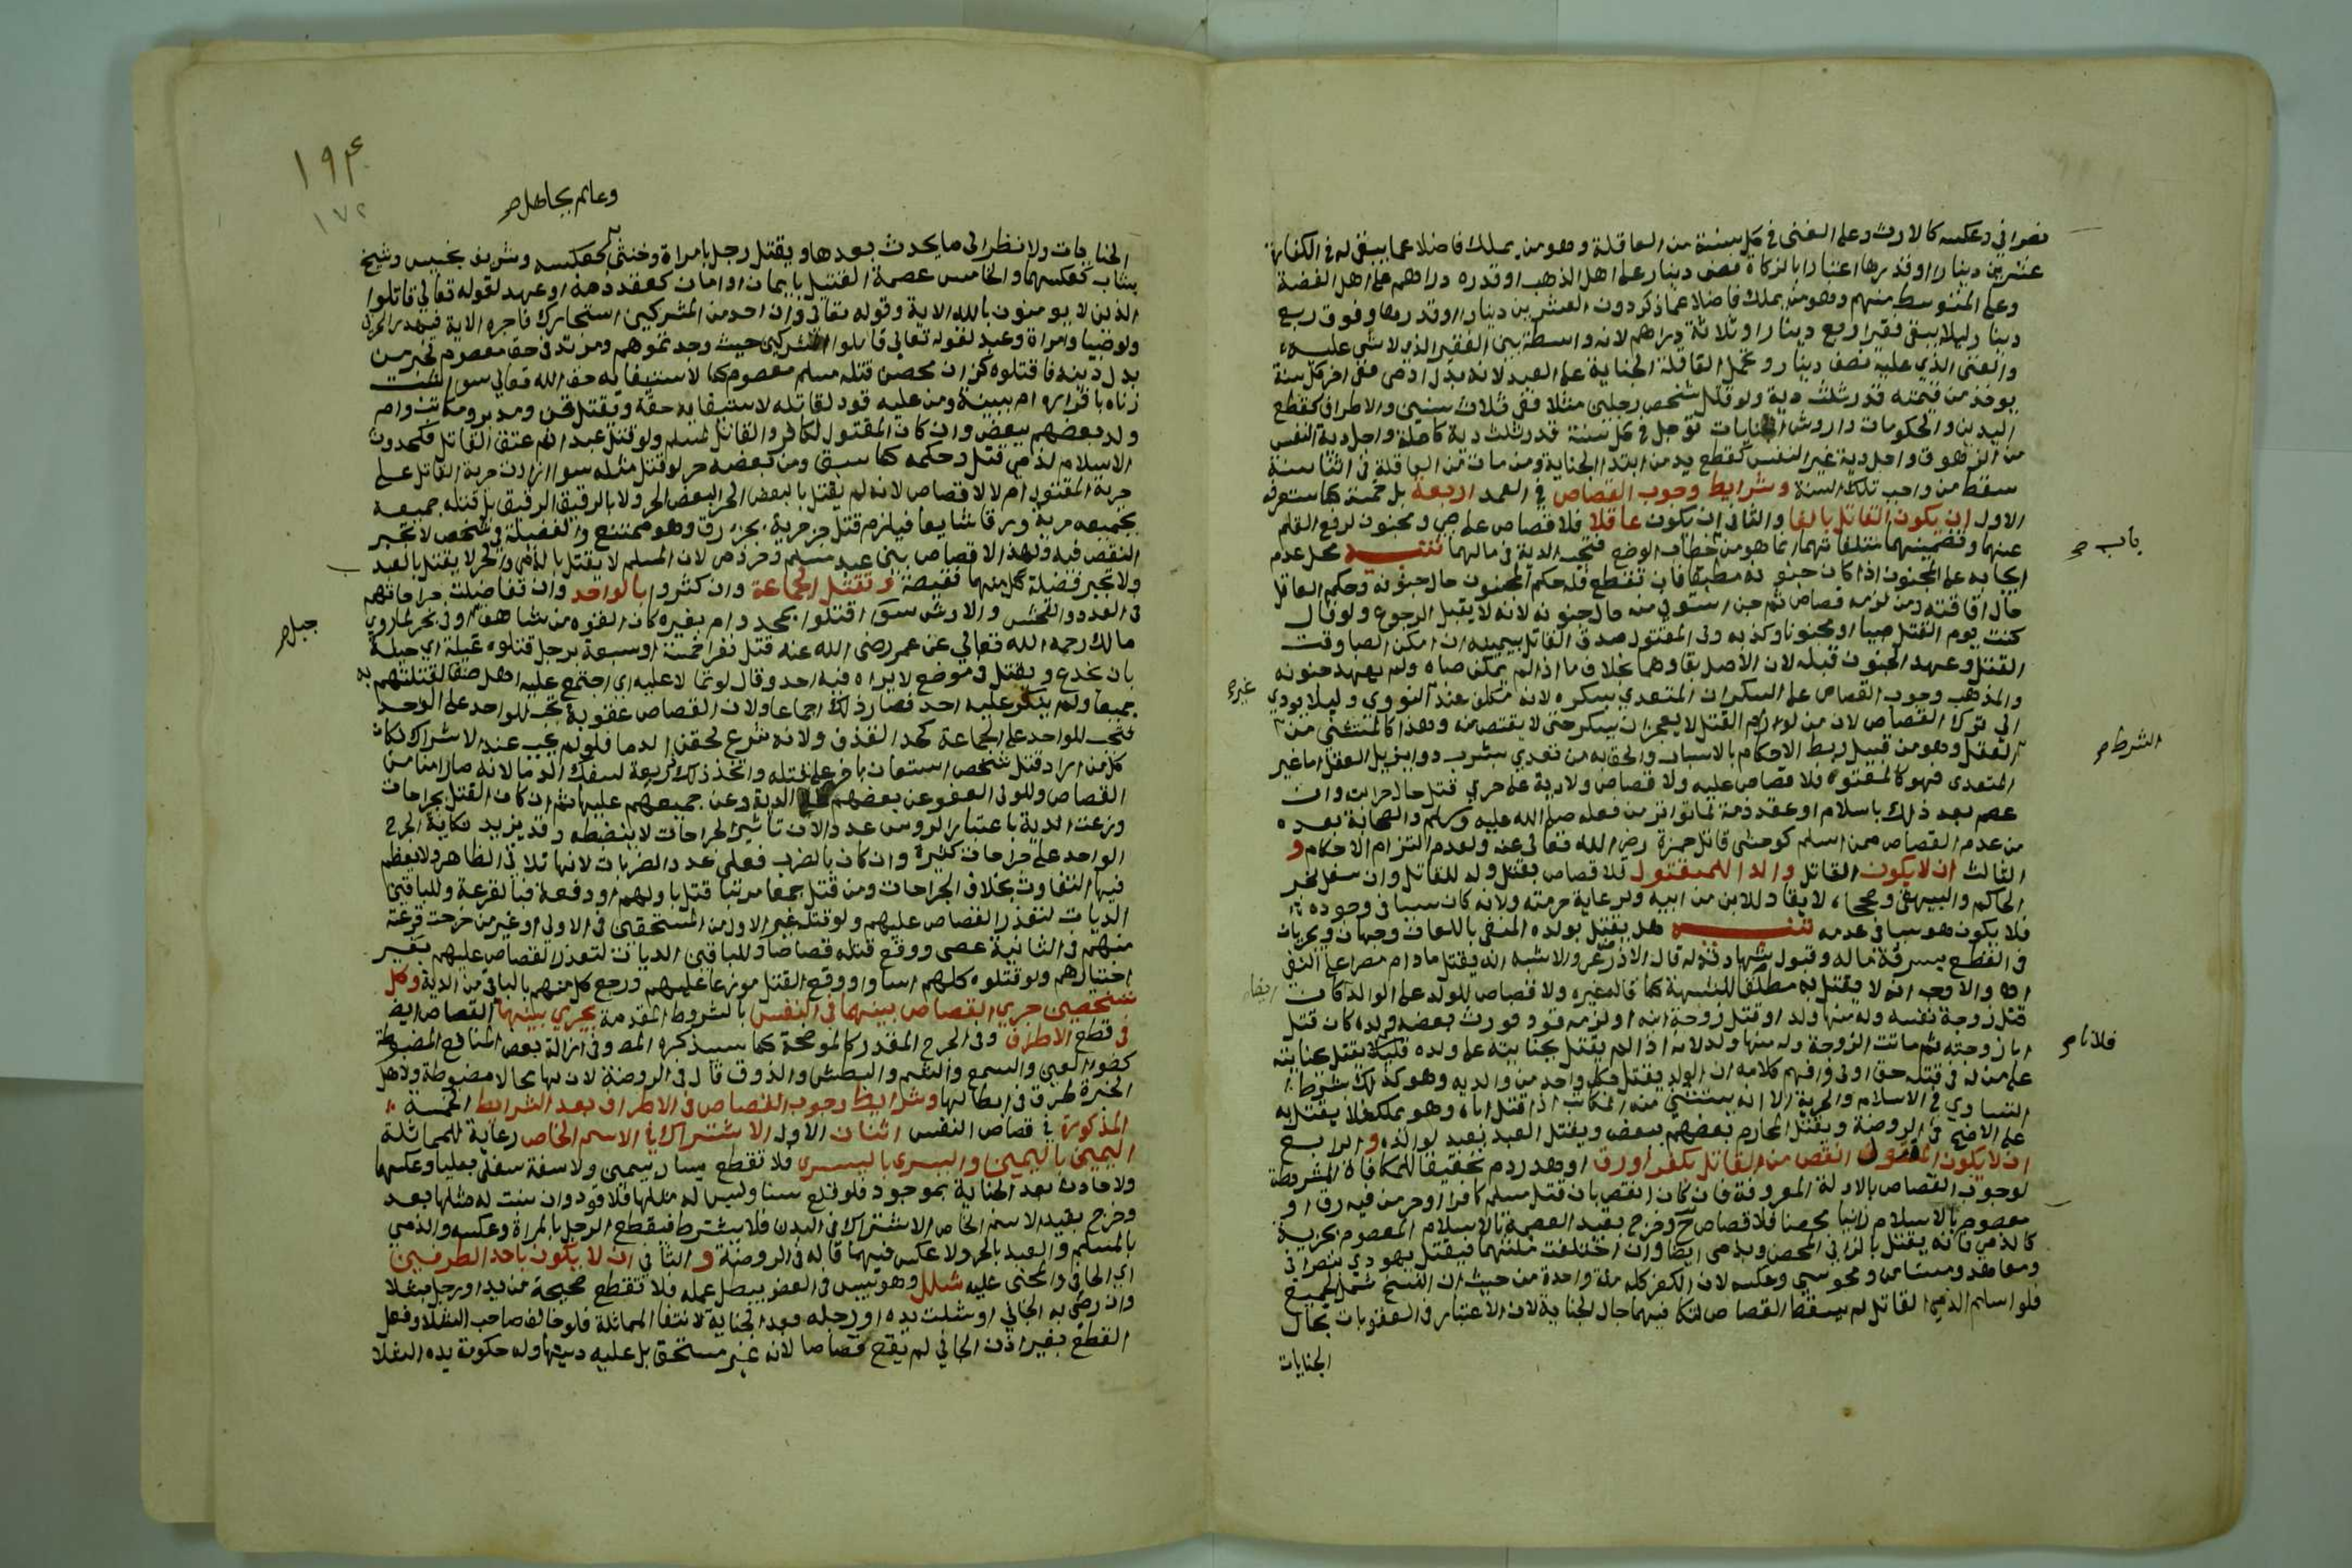 نصراني وعكسه كالارث وعلى الغني في كل سنة من العاقلة وهو من يملك فاضلا عما يبقى له في الكفارة
عشرين دينارا او قدرها اعتبارا بالزكاة نصف دينار على اهل الذهب او قدره دراهم على اهل الفضة
وعلى المتوسط منهم وهو من يملك فاضلا عما ذكر دون العشرين دينارا او قدرها وفوق ربع
دينار ليلا يبقى فقيرا ربع دينار او ثلاثة دراهم لانه واسطة بين الفقير الذي لا شي عليه
والغني الذي عليه نصف دينار وتحمل العاقلة الجناية على العبد لانه بدل ادمي ففي اخر كل سنة
يوخذ من قيمته قدر ثلث دية ولو قتل شخص رجلين مثلا ففي ثلاث سنين والاطراف كقطع
اليدين والحكومات واروش الجنايات توجل في كل سنة قدر ثلث دية كاملة واجل دية النفس
من الزهوق واجل دية غير النفس كقطع يد من ابتدا الجناية ومن مات من العاقلة في اثنا سنة
سقط من واجب تلك السنة وشرايط وجوب القصاص في العمد اربعة بل خمسة كما ستعرفه
الاول ان يكون القاتل بالغا والثاني ان يكون عاقلا فلا قصاص على صبي ومجنون لرفع القلم
عنهما وتضمينهما متلفاتهما انما هو من خطاب الوضع فتجب الدية في مالهما تنبيه محل عدم
باب صح
ايجابه على المجنون اذا كان جنونه مطبقا فان تقطع فله حكم المجنون حال جنونه وحكم العاقل
حال افاقته ومن لزمه قصاص ثم جن استوفي منه حال جنونه لانه لا يقبل الرجوع ولو قال
كنت يوم القتل صبيا او مجنونا وكذبه ولي المقتول صدق القاتل بيمينه ان امكن الصبا وقت
القتل وعهد الجنون قبله لان الاصل بقاوهما بخلاف ما اذا لم يمكن صباه ولم يعهد جنونه
والمذهب وجوب القصاص على السكران المتعدي بسكره لانه مكلف عند النووي وليلا يودي
غيره
الى ترك القصاص لان من لو رام القتل لا يعجز ان يسكر حتى لا يقتص منه وهذا كالمستثنى من
العقل وهو من قبيل ربط الاحكام بالاسباب والحق به من تعدي بشرب دوا يزيل العقل اما غير
الشرط صح
المتعدي فهو كالمعتوه فلا قصاص عليه ولا قصاص ولا دية على حربي قتل حال حرابته وان
عصم بعد ذلك باسلام او عقد ذمة لما تواتر من فعله صلى الله عليه وسلم والصحابة بعده
من عدم القصاص ممن اسلم كوحشي قاتل حمزة رضي الله تعالى عنه ولعدم التزام الاحكام و
الثالث ان لا يكون القاتل والدا للمقتول فلا قصاص بقتل ولد للقاتل وان سفل لخبر
الحاكم والبيهقي وصححاه لا يقاد للابن من ابيه ولرعاية حرمته ولانه كان سببا في وجوده
فلا يكون هو سببا في عدمه تنبيه هل يقتل بولده المنفي باللعان وجهان ويجريان
في القطع بسرقة ماله وقبول شهادته له قال الاذرعي والاشبه انه يقتل ما دام مصرا على النفي
اه والاوجه انه لا يقتل به مطلقا للشبهة كما قاله غيره ولا قصاص للولد على الوالد كان
ايضا
قتل زوجة نفسه وله منها ولد او قتل زوجة ابنه او لزمه قود فورث بعضه ولده كان قتل
ابا زوجته ثم ماتت الزوجة وله منها ولد لانه اذا لم يقتل بجنايته على ولده فلان لا يقتل بجنايته
فلانا صح
على من له في قتله حق اولى وافهم كلامه ان الولد يقتل بكل واحد من والديه وهو كذلك بشرط
التساوي في الاسلام والحرية الا انه يستثنى منه المكاتب اذا قتل اباه وهو يملكه فلا يقتل به
على الاصح في الروضة ويقتل المحارم بعضهم ببعض ويقتل العبد بعبد لوالده والرابع
ان لا يكون المقتول انقص من القاتل بكفر او رق او هدر دم تحقيقا للمكافاة المشروطة
لوجوب القصاص بالادلة المعروفة فان كان انقص بان قتل مسلم كافرا او حر من فيه رق او
معصوم بالاسلام زانيا محصنا فلا قصاص ح وخرج بقيد العصمة بالاسلام المعصوم بجزية
كالذمي فانه يقتل بالزاني المحصن وبذمي ايضا وان اختلفت ملتهما فيقتل يهودي بنصراني
ومعاهد ومستامن ومجوسي وعكسه لان الكفر كله ملة واحدة من حيث ان النسخ شمل الجميع
فلو اسلم الذمي القاتل لم يسقط القصاص لتكافيهما حال الجناية لان الاعتبار في العقوبات بحال
الجنايات
١٩٤
١٧٢
وعالم بجاهل صح
الجنايات ولا نظر الى ما يحدث بعدها ويقتل رجل بامراة وخنثى كعكسه وشريف بخسيس وشيخ
بشاب كعكسهما والخامس عصمة القتيل بايمان او امان كعقد ذمة او عهد لقوله تعالى قاتلوا
الذين لا يومنون بالله الاية وقوله تعالى وان احد من المشركين استجارك فاجره الاية فيهدر الحربي
ولو صبيا وامراة وعبد لقوله تعالى فاقتلوا المشركين حيث وجدتموهم ومرتد في حق معصوم لخبر من
بدل دينه فاقتلوه كزان محصن قتله مسلم معصوم كما لاستيفايه حق الله تعالى سوا اثبت
زناه باقراره ام ببينة ومن عليه قود لقاتله لاستيفايه حقه ويقتل قن ومدبر ومكاتب وام
ولد بعضهم ببعض وان كان المقتول لكافر والقاتل لمسلم ولو قتل عبد عبدا ثم عتق القاتل فكحدوث
الاسلام لذمي قتل وحكمه كما سبق ومن بعضه حر لو قتل مثله سوا ازادت حرية القاتل على
حرية المقتول ام لا لا قصاص لانه لم يقتل بالبعض الحر البعض الحر ولا بالرقيق الرقيق بل قتله جميعه
بجميعه حرية ورقا شايعا فيلزم قتل جز حرية بجز رق وهو ممتنع والفضيلة في شخص لا تجبر
النقص فيه ولهذا لا قصاص بين عبد مسلم وحر ذمي لان المسلم لا يقتل بالذمي والحر لا يقتل بالعبد
ولا تجبر فضيلة كل منهما نقيصة وتقتل الجماعة وان كثروا بالواحد وان تفاضلت جراحاتهم
في العدد والفحش والارش سوا اقتلوا بمحدد ام بغيره كان القوه من شاهق او في بحر لما روي
جبل صح
مالك رحمه الله تعالى عن عمر رضي الله عنه قتل نفرا خمسة او سبعة برجل قتلوه غيلة اي حيلة
بان يخدع ويقتل في موضع لا يراه فيه احد وقال لو تمالا عليه اي اجتمع عليه اهل صنعا لقتلتهم به
جميعا ولم ينكر عليه احد فصار ذلك اجماعا ولان القصاص عقوبة تجب للواحد على الواحد
فتجب للواحد على الجماعة كحد القذف ولانه شرع لحقن الدما فلو لم يجب عند الاشتراك لكان
كل من اراد قتل شخص استعان باخر على قتله واتخذ ذلك ذريعة لسفك الدما لانه صار امنا من
القصاص وللولي العفو عن بعضهم على الدية وعن جميعهم عليها ثم ان كان القتل بجراحات
وزعت الدية باعتبار الروس عددا لان تاثير الجراحات لا ينضبط وقد يزيد نكاية الجرح
الواحد على جراحات كثيرة وان كان بالضرب فعلى عدد الضربات لانها تلاقي الظاهر ولا يعظم
فيها التفاوت بخلاف الجراحات ومن قتل جمعا مرتبا قتل باولهم او دفعة فبالقرعة وللباقين
الديات لتعذر القصاص عليهم ولو قتله غير الاول من المستحقين في الاولى او غير من خرجت قرعته
منهم في الثانية عصى ووقع قتله قصاصا وللباقين الديات لتعذر القصاص عليهم بغير
اختيارهم ولو قتلوه كلهم اساوا ووقع القتل موزعا عليهم ورجع كل منهم بالباقي من الدية وكل
شخصين جري القصاص بينهما في النفس بالشروط المتقدمة يجري بينهما القصاص ايضا
في قطع الاطراف وفي الجرح المقدر كالموضحة كما سيذكره المص وفي ازالة بعض المنافع المضبوطة
كضوء العين والسمع والشم والبطش والذوق قال في الروضة لان لها محالا مضبوطة ولاهل
الخبرة طرق في ابطالها وشرايط وجوب القصاص في الاطراف بعد الشرايط الخمسة
المذكورة في قصاص النفس اثنان الاول الاشتراك في الاسم الخاص رعاية للمماثلة
اليمين باليمين واليسرى باليسرى فلا تقطع يسار بيمين ولا شفة سفلى بعليا وعكسهما
ولا حادث بعد الجناية بموجود فلو قلع سنا وليس له مثلها فلا قود وان نبت له مثلها بعد
وخرج بقيد الاسم الخاص الاشتراك في البدن فلا يشترط فيقطع الرجل بالمراة وعكسه والذمي
بالمسلم والعبد بالحر ولا عكس فيهما قاله في الروضة و الثاني ان لا يكون باحد الطرفين
اي الجاني والمجني عليه شلل وهو يبس في العضو يبطل عمله فلا تقطع صحيحة من يد او رجل بشلا
وان رضي به الجاني او شلت يده او رجله بعد الجناية لانتفا المماثلة فلو خالف صاحب الشلا وفعل
القطع بغير اذن الجاني لم يقع قصاصا لانه غير مستحق بل عليه ديتها وله حكومة يده الشلا